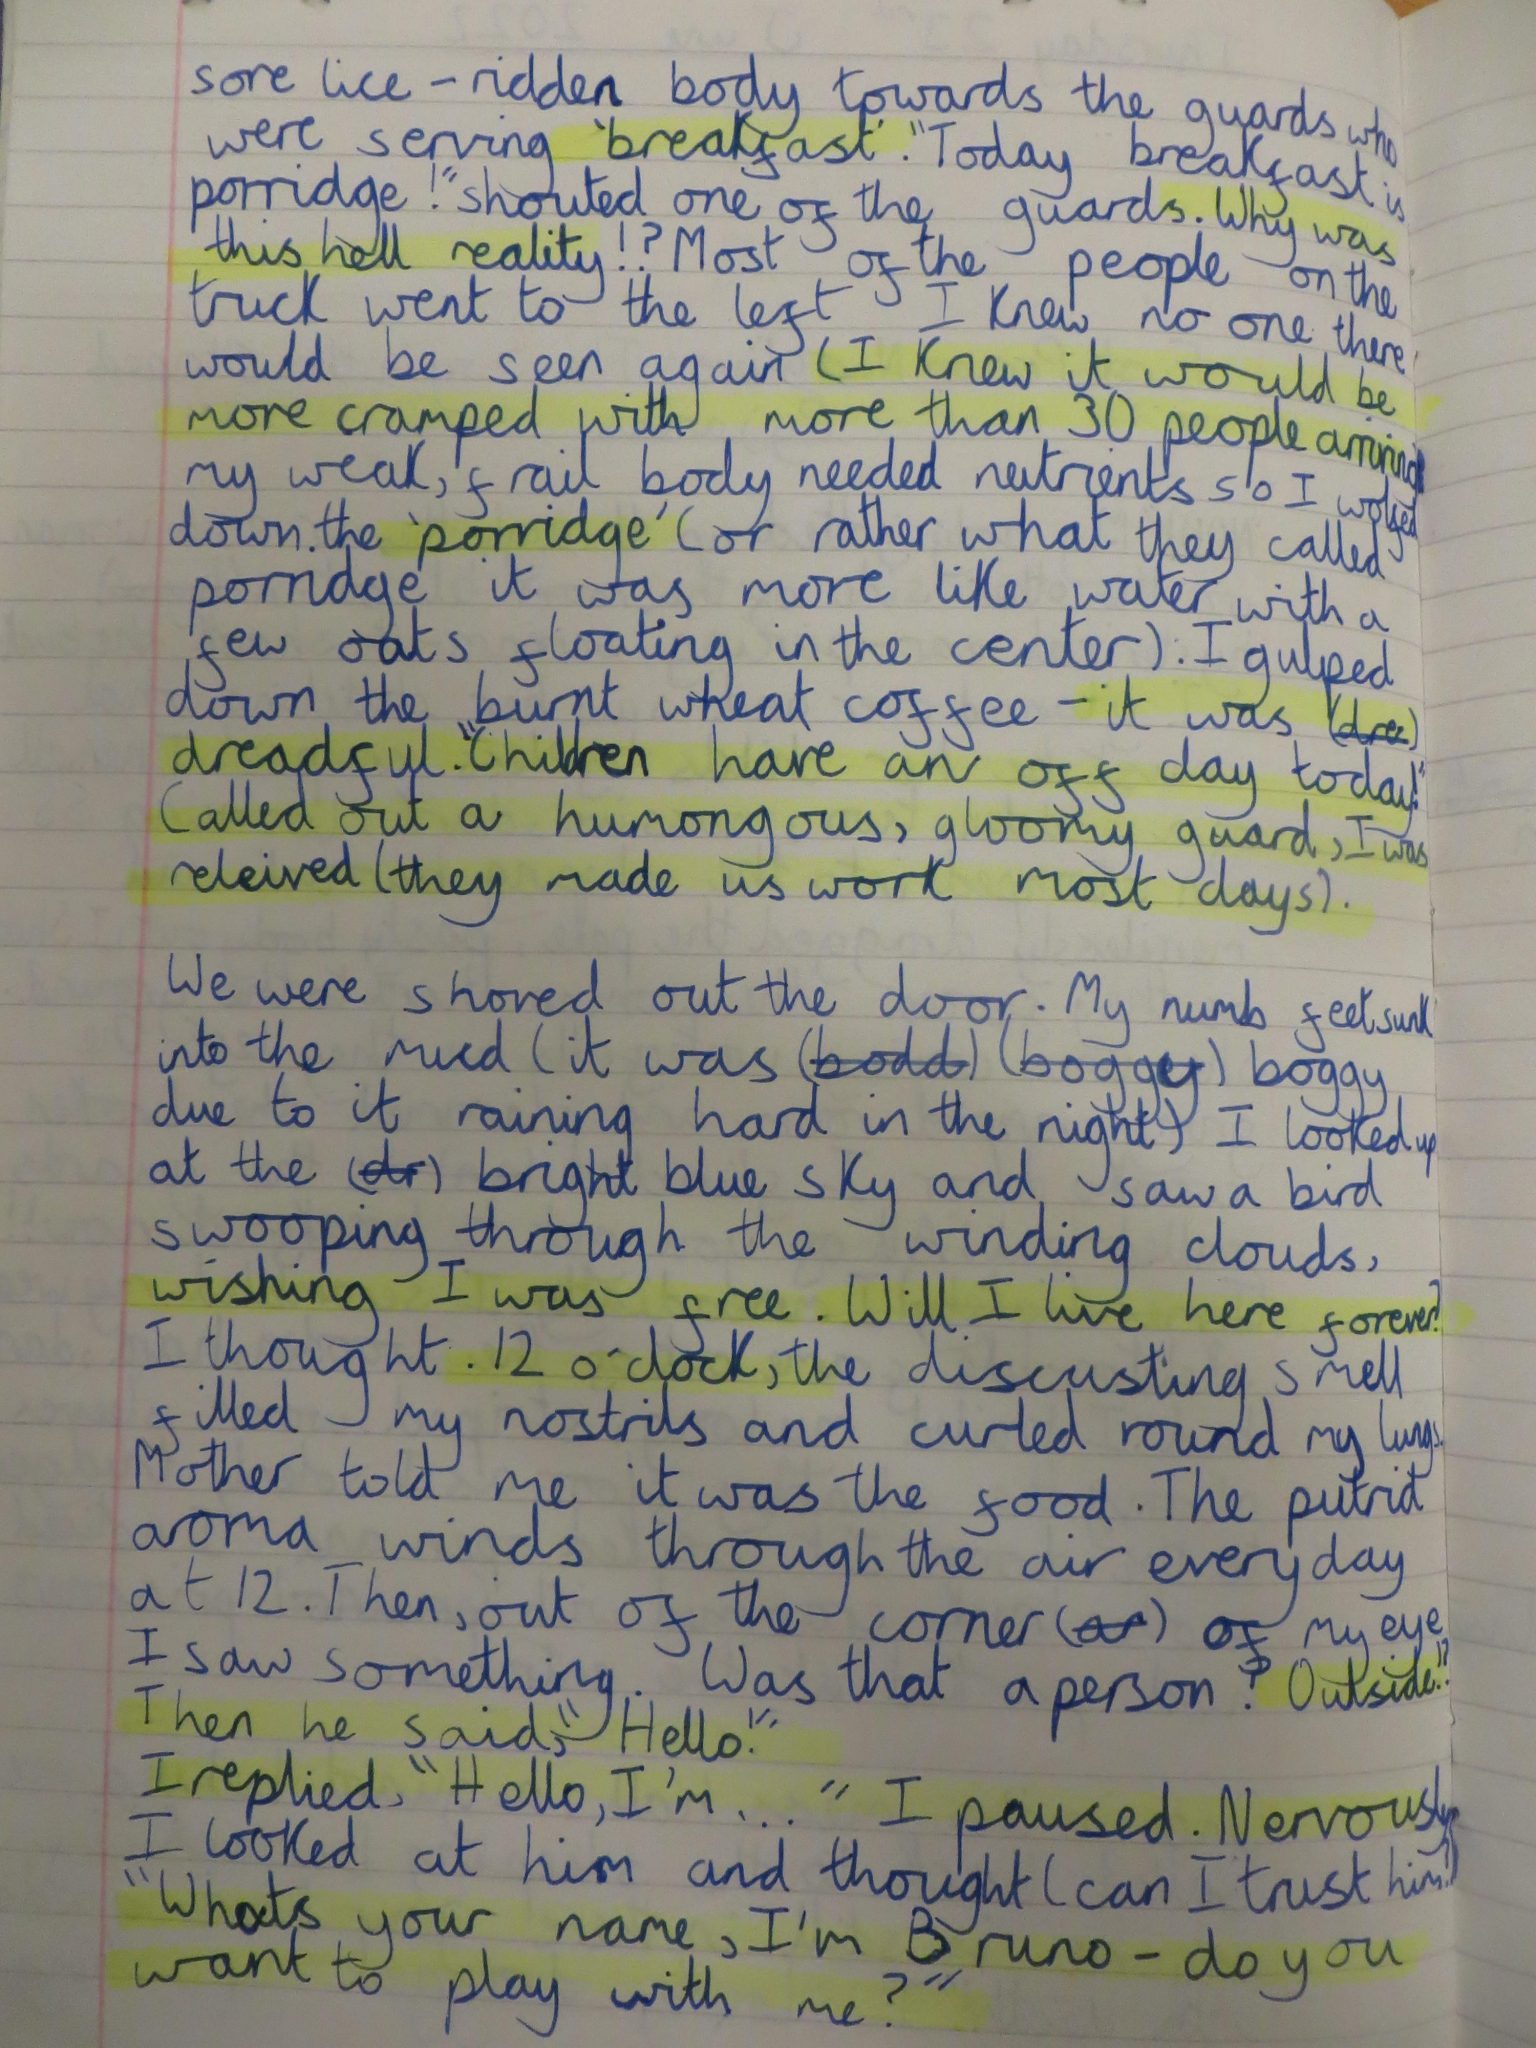 sore lice-ridden body towards the guards who
were serving 'breakfast'. "Today breakfast is
porridge!" shouted one of the guards. Why was
this hell reality!? Most of the people on the
truck went to the left I knew no one there
would be seen again (I knew it would be
more cramped with more than 30 people arriving
my weak, frail body needed nutrients so I wolfed
down the 'porridge' (or rather what they called
porridge it was more like water with a
few oats floating in the center). I gulped
down the burnt wheat coffee - it was (dre)
dreadful. "Children have an off day today!"
Called out a humongous, gloomy guard, I was
releived (they made us work most days).
We were shoved out the door. My numb feet sunk
into the mud (it was (bodd) (boggy) boggy
due to it raining hard in the night) I looked up
at the (dr) bright blue sky and saw a bird
swooping through the winding clouds,
wishing I was free. Will I live here forever?
I thought. 12 o'clock, the discusting smell
filled my nostrils and curled round my lungs.
Mother told me it was the food. The putrid
aroma winds through the air everyday
at 12. Then, out of the corner (or) of my eye
I saw something. Was that a person? Outside!?
Then he said, "Hello!"
I replied, "Hello, I'm..." I paused. Nervously
I looked at him and thought (can I trust him?)
"Whats your name, I'm Bruno - do you
want to play with me?"